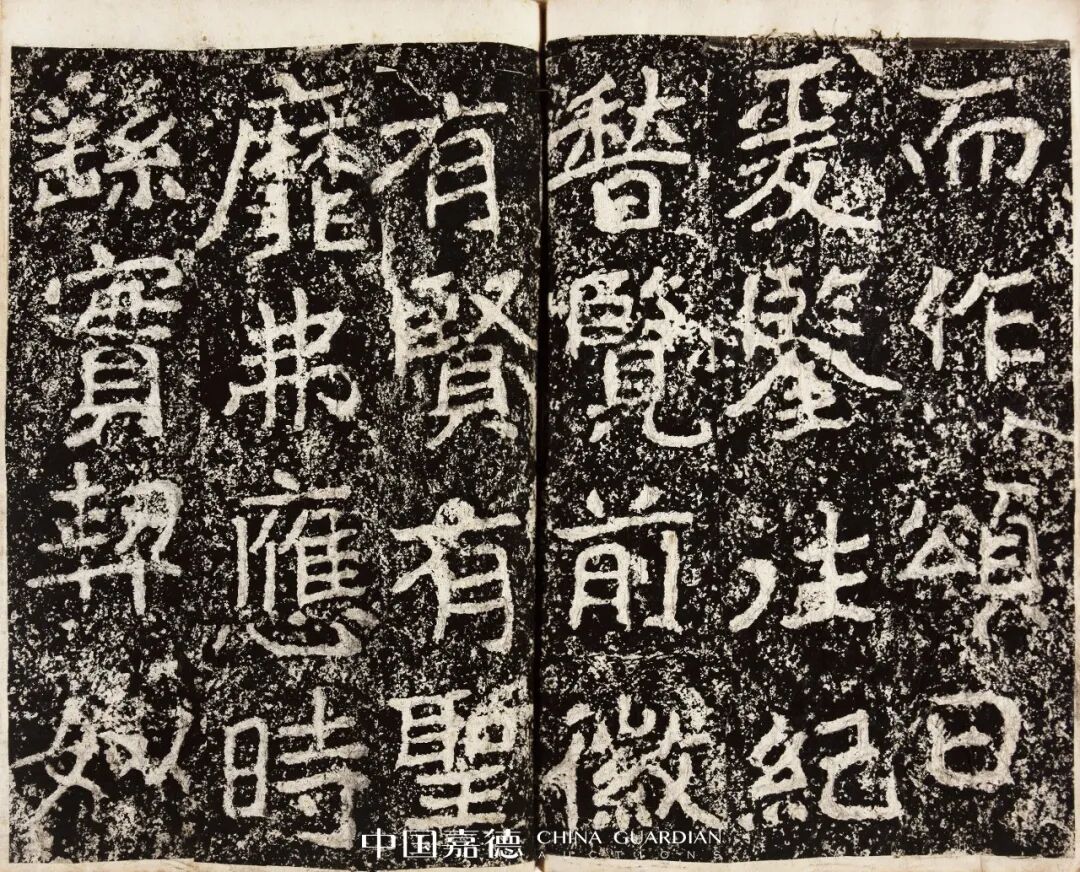 而作頌曰
爰鑒往紀
稽覽前徽
有賢有聖
靡弗應時
繇實契姒
中国嘉德 CHINA GUARDIAN
AUCTIONS